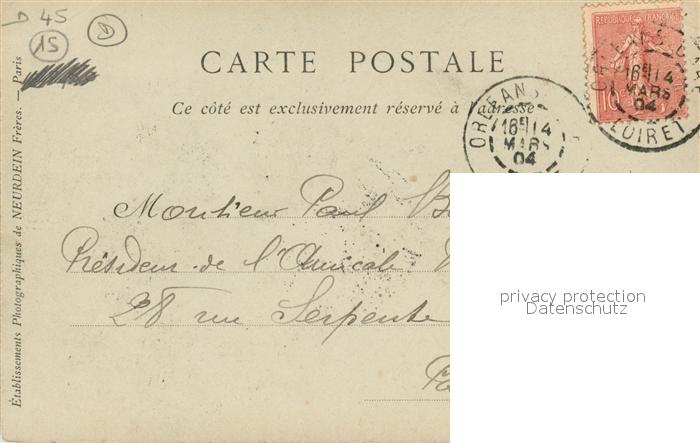 D 45
15
D
CARTE POSTALE
Ce côté est exclusivement réservé à l'adresse
Établissements Photographiques de NEURDEIN Frères. — Paris
REPUBLIQUE FRANÇAISE
10
16E 14
MARS
04
LOIRET
ORLEANS
16E 14
MARS
04
Monsieur Paul
Président de l'Amicale
28 rue Serpente
privacy protection
Datenschutz